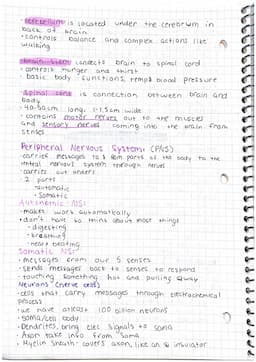 cerebellum is located under the cerebrum in
back of brain
• controls balance and complex actions like
walking
brain stem connects brain to spinal cord
• controls hunger and thirst
• basic body functions, temp & blood pressure
spinal cord is connection between brain and
body
• 40-50cm long, 1-1.5cm wide
• contains motor nerves out to the muscles
and sensory nerves coming into the brain from
senses
Peripheral Nervous System: (PNS)
• carries messages to & from parts of the body to the
central nervous system through nerves
• carries out orders
• 2 parts
• automatic
• somatic
Autonomic NS:
• makes work automatically
• don't have to think about most things
• digesting
• breathing
• heart beating
Somatic NS:
• messages from our 5 senses
• sends messages back to senses to respond
• touching something hot and pulling away
Neurons (nerve cells)
• cells that carry messages through electrochemical
process
• we have atleast 100 billion neurons
• soma/cell body
• Dendrites, bring elec signals to soma
• Axon take info from soma
• Myelin Sheath: covers axon, like an insulator